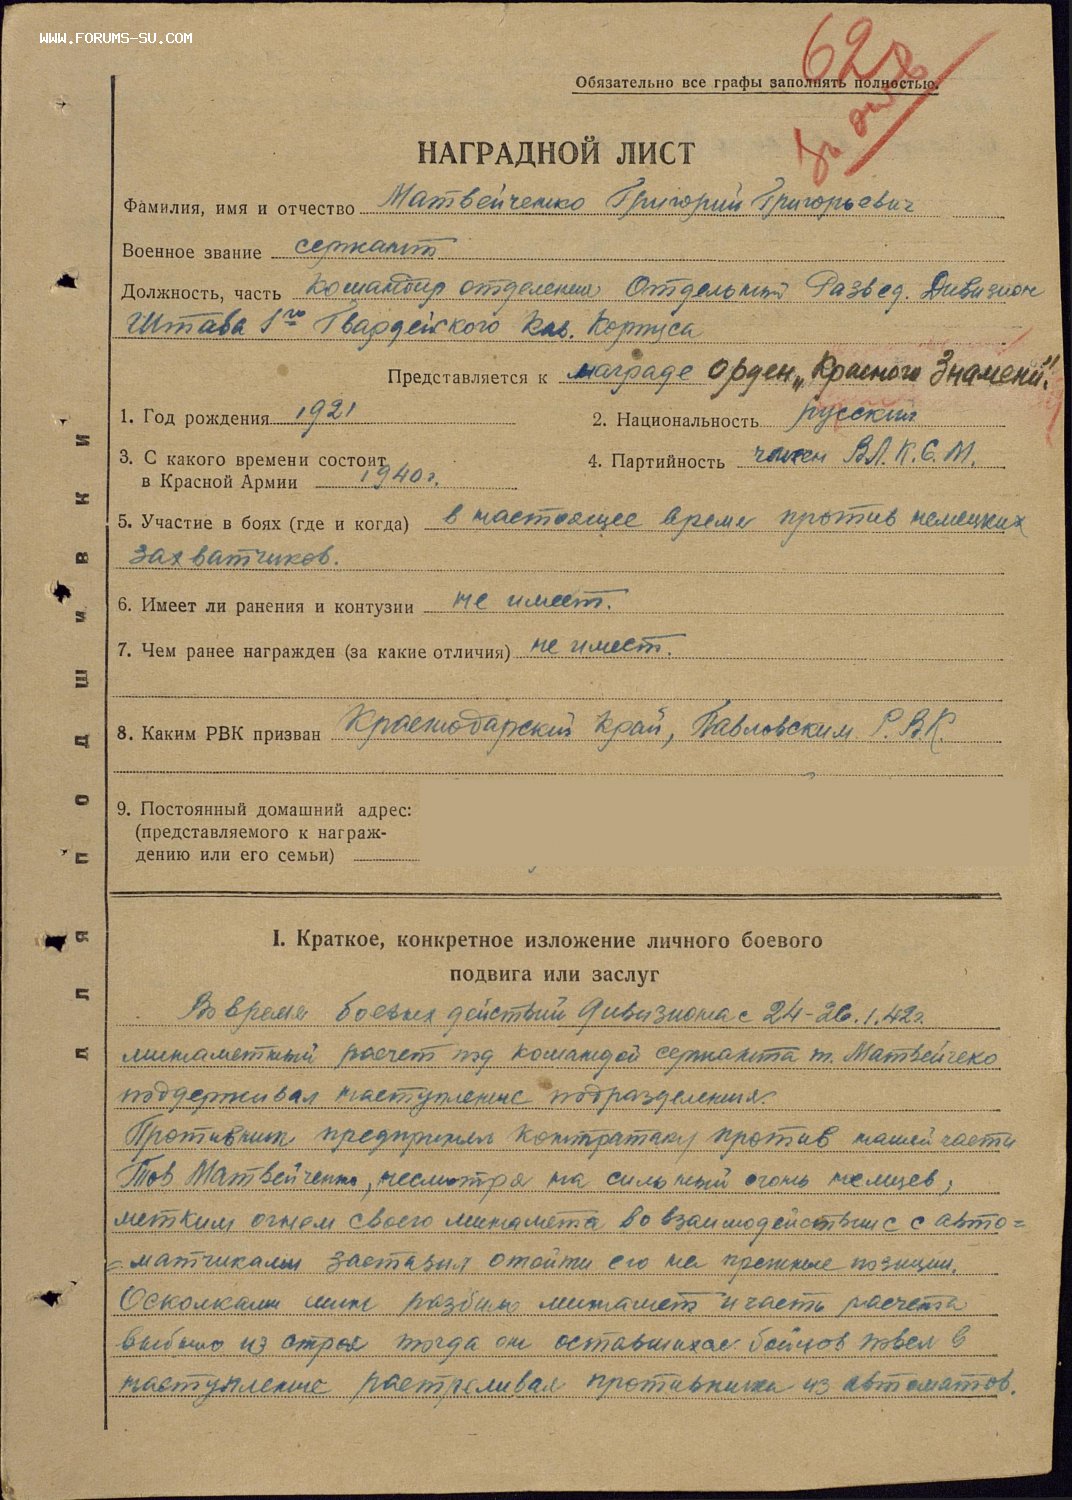 WWW.FORUMS-SU.COM
62
Обязательно все графы заполнять полностью.
НАГРАДНОЙ ЛИСТ
Фамилия, имя и отчество Матвейченко Григорий Григорьевич
Военное звание сержант
Должность, часть Командир отделения Отдельный Развед. Дивизион
Штаба 1го Гвардейского Кав. Корпуса
Представляется к награде орден „Красного Знамени".
1. Год рождения 1921
2. Национальность русский
3. С какого времени состоит
в Красной Армии 1940 г.
4. Партийность член ВЛ.К.С.М.
5. Участие в боях (где и когда) в настоящее время против немецких
захватчиков.
6. Имеет ли ранения и контузии не имеет.
7. Чем ранее награжден (за какие отличия) не имеет.
8. Каким РВК призван Краснодарский Край, Павловским Р.В.К.
9. Постоянный домашний адрес:
(представляемого к награж-
дению или его семьи)
ДЛЯ ПОДШИВКИ
I. Краткое, конкретное изложение личного боевого
подвига или заслуг
Во время боевых действий дивизиона с 24-26.1.42г.
минометный расчет под командой сержанта т. Матвейчеко
поддерживал наступление подразделения.
Противник предпринял контратаку против нашей части
Тов Матвейченко, несмотря на сильный огонь немцев,
метким огнем своего миномета во взаимодействии с авто=
=матчиками заставил отойти его на прежние позиции.
Осколками мин разбило миномет и часть расчета
выбыло из строя тогда он оставшихся бойцов повел в
наступление расстреливая противника из автоматов.